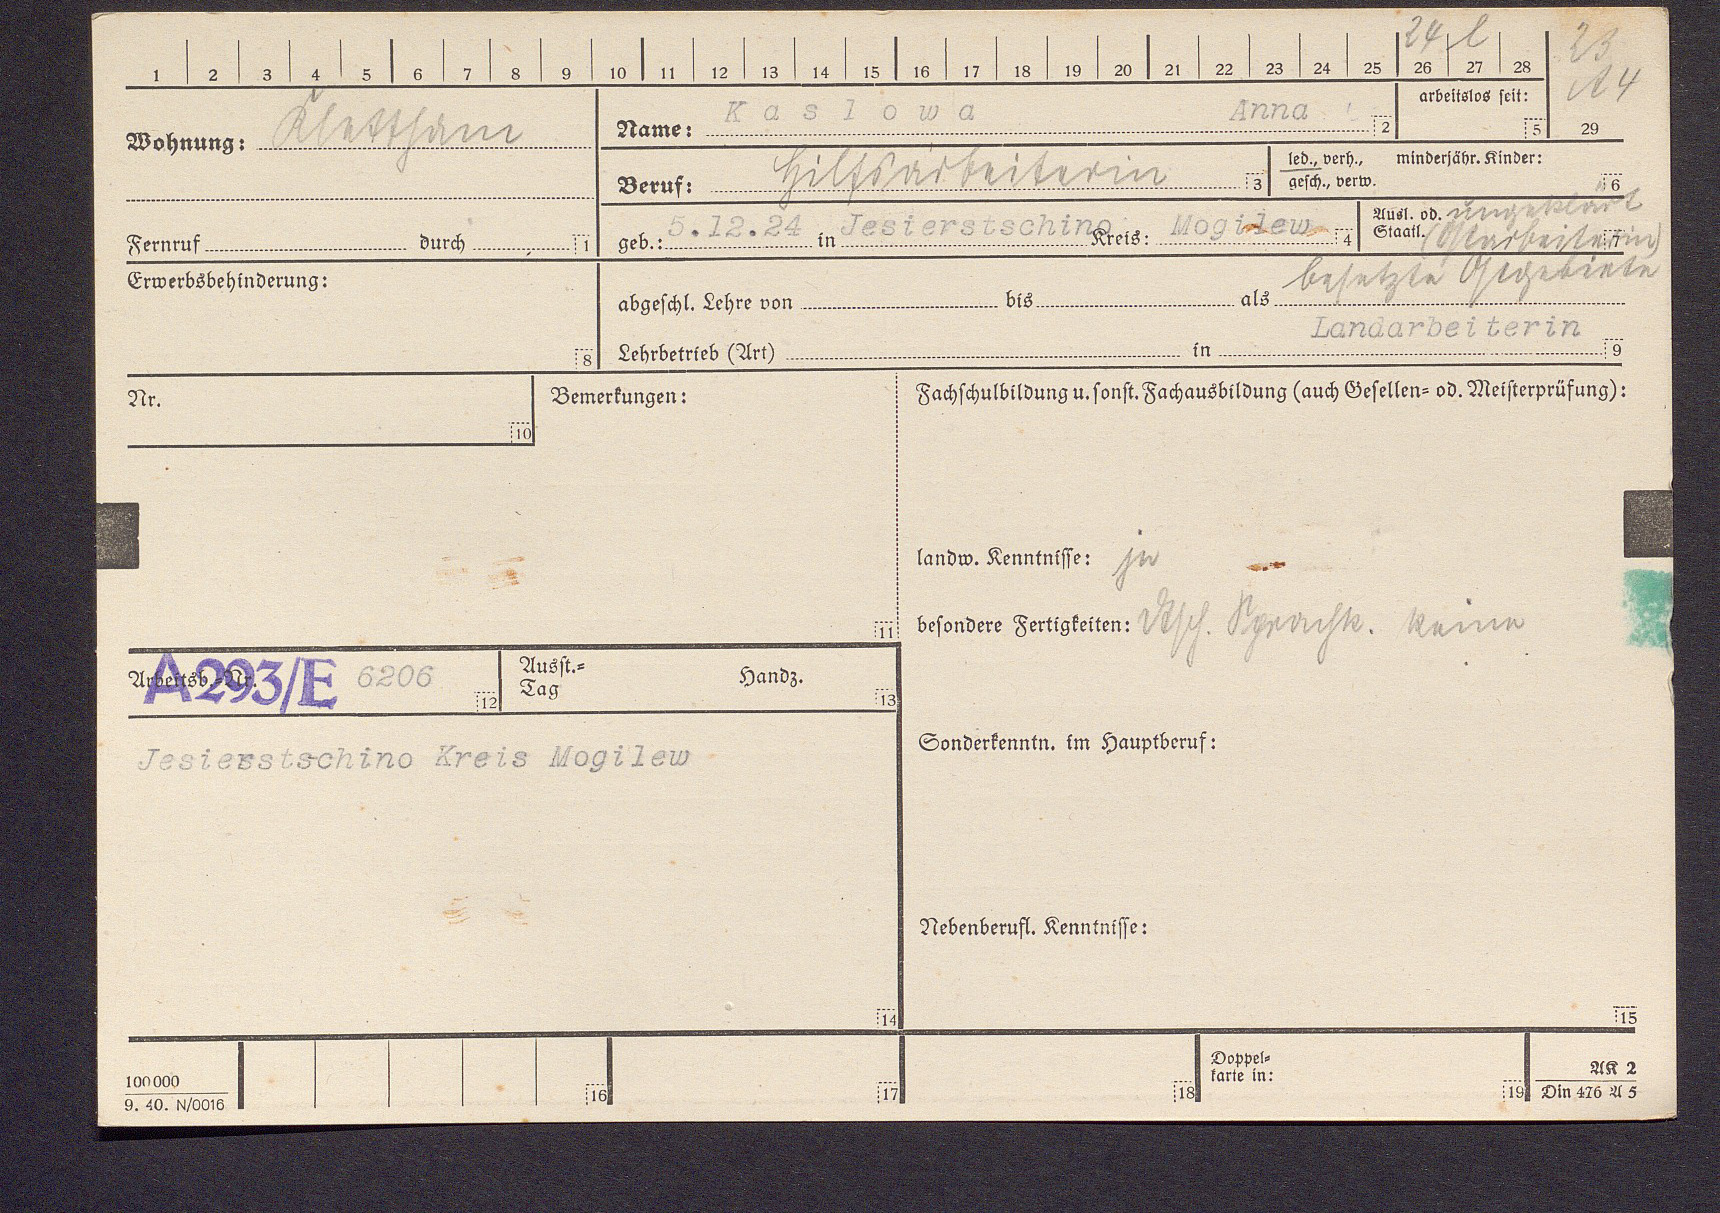 24 l 23
1 2 3 4 5 6 7 8 9 10 11 12 13 14 15 16 17 18 19 20 21 22 23 24 25 26 27 28
A4
29
Wohnung: Klettham
Name: Kaslowa Anna 2
arbeitslos seit: 5
Beruf: Hilfsarbeiterin 3
led., verh., gesch., verw.
minderjähr. Kinder: 6
Fernruf durch 1
geb.: 5.12.24 in Jesierstschino Kreis: Mogilew 4
Ausl. od. Staatl. ungeklärt (Ostarbeiterin) 7
Erwerbsbehinderung: 8
besetzte Ostgebiete
abgeschl. Lehre von bis als
Landarbeiterin
Lehrbetrieb (Art) in 9
Nr. 10
Bemerkungen: 11
Fachschulbildung u. sonst. Fachausbildung (auch Gesellen- od. Meisterprüfung):
landw. Kenntnisse: ja
besondere Fertigkeiten: Dtsch. Sprachk. keine
Arbeitsb.-Nr. A293/E 6206 12
Ausst.-Tag Handz. 13
Jesierstschino Kreis Mogilew
14
Sonderkenntn. im Hauptberuf:
Nebenberufl. Kenntnisse:
15
100000
9. 40. N/0016
16 17 18
Doppel-
karte in: 19
AK 2
Din 476 A 5